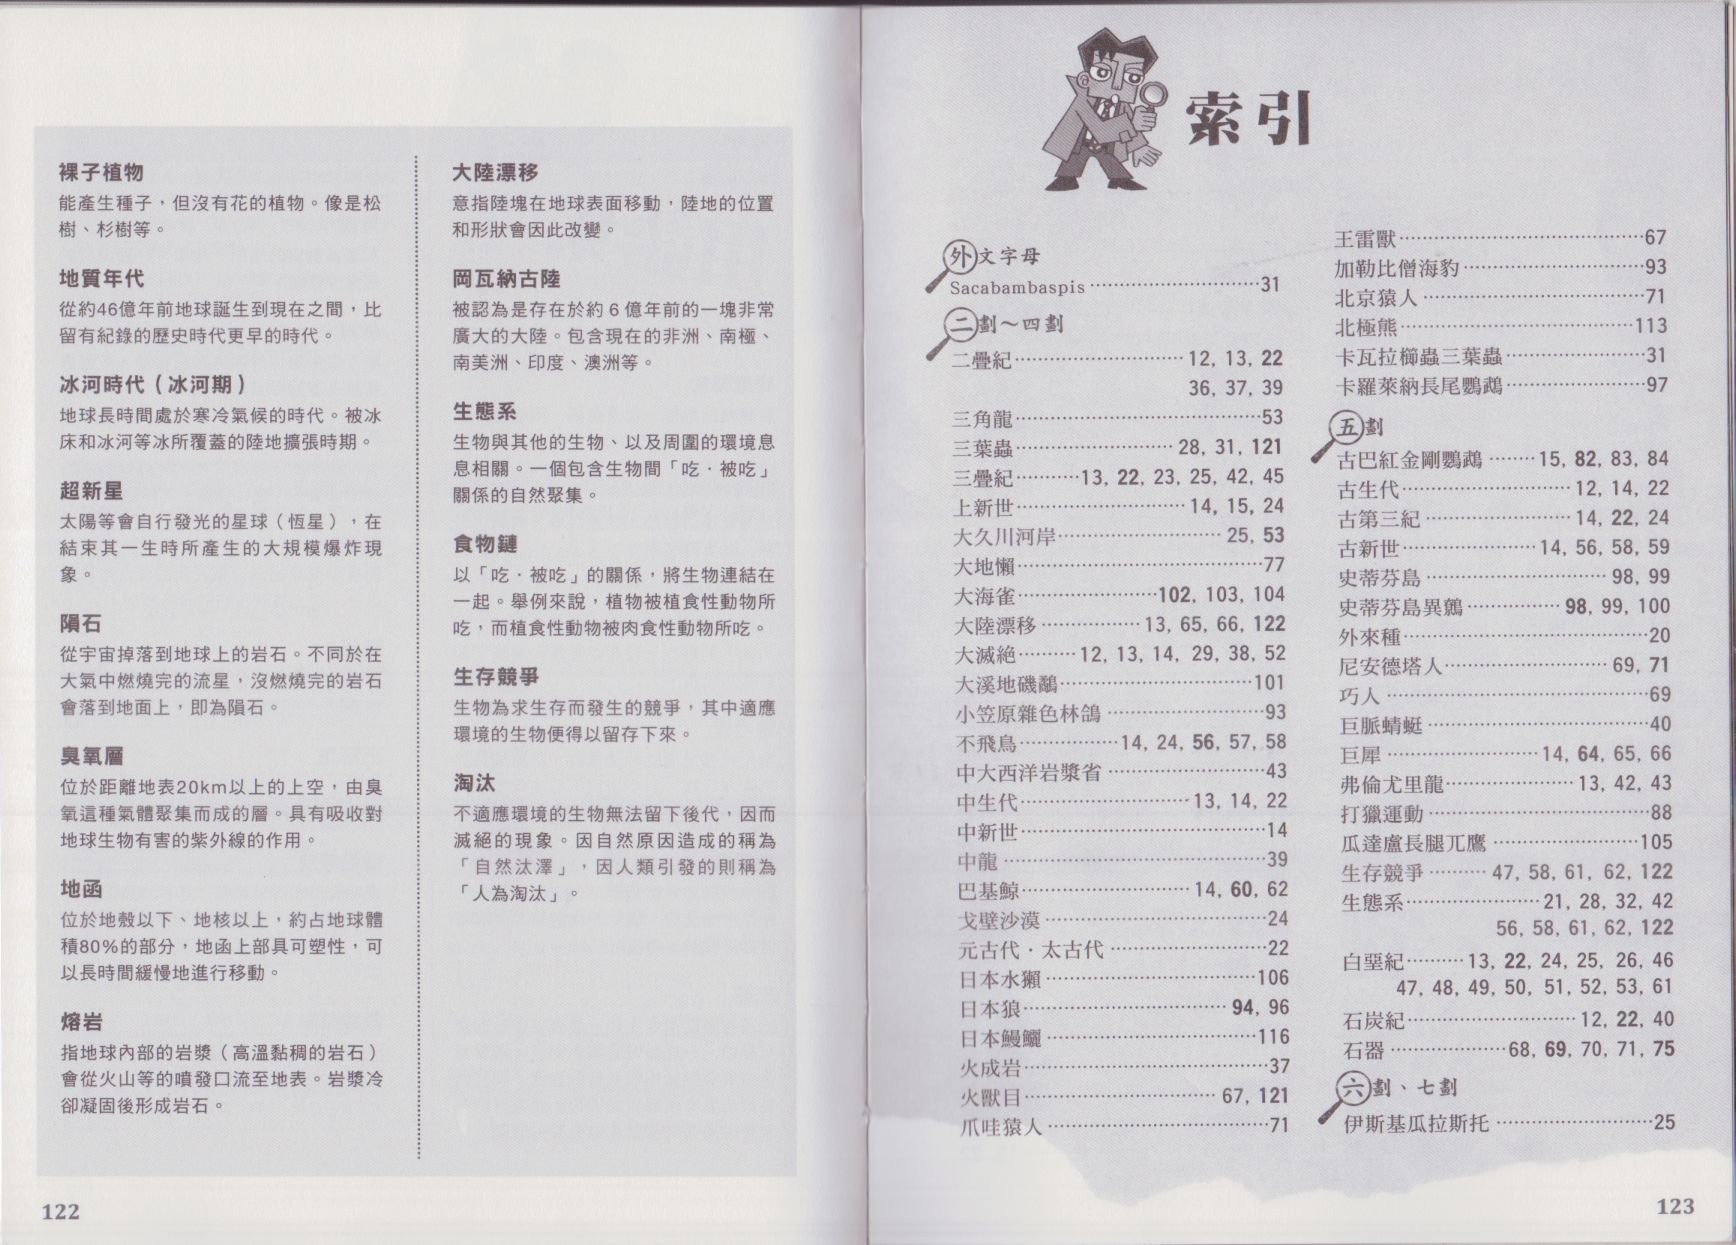 裸子植物
能產生種子，但沒有花的植物。像是松
樹、杉樹等。
地質年代
從約46億年前地球誕生到現在之間，比
留有紀錄的歷史時代更早的時代。
冰河時代（冰河期）
地球長時間處於寒冷氣候的時代。被冰
床和冰河等冰所覆蓋的陸地擴張時期。
超新星
太陽等會自行發光的星球（恆星），在
結束其一生時所產生的大規模爆炸現
象。
隕石
從宇宙掉落到地球上的岩石。不同於在
大氣中燃燒完的流星，沒燃燒完的岩石
會落到地面上，即為隕石。
臭氧層
位於距離地表20km以上的上空，由臭
氧這種氣體聚集而成的層。具有吸收對
地球生物有害的紫外線的作用。
地函
位於地殼以下、地核以上，約占地球體
積80%的部分，地函上部具可塑性，可
以長時間緩慢地進行移動。
熔岩
指地球內部的岩漿（高溫黏稠的岩石）
會從火山等的噴發口流至地表。岩漿冷
卻凝固後形成岩石。
大陸漂移
意指陸塊在地球表面移動，陸地的位置
和形狀會因此改變。
岡瓦納古陸
被認為是存在於約6億年前的一塊非常
廣大的大陸。包含現在的非洲、南極、
南美洲、印度、澳洲等。
生態系
生物與其他的生物、以及周圍的環境息
息相關。一個包含生物間「吃・被吃」
關係的自然聚集。
食物鏈
以「吃・被吃」的關係，將生物連結在
一起。舉例來說，植物被植食性動物所
吃，而植食性動物被肉食性動物所吃。
生存競爭
生物為求生存而發生的競爭，其中適應
環境的生物便得以留存下來。
淘汰
不適應環境的生物無法留下後代，因而
滅絕的現象。因自然原因造成的稱為
「自然汰澤」，因人類引發的則稱為
「人為淘汰」。
122
索引
外文字母
Sacabambaspis……31
二劃～四劃
二疊紀……12, 13, 22
36, 37, 39
三角龍……53
三葉蟲……28, 31, 121
三疊紀……13, 22, 23, 25, 42, 45
上新世……14, 15, 24
大久川河岸……25, 53
大地懶……77
大海雀……102, 103, 104
大陸漂移……13, 65, 66, 122
大滅絕……12, 13, 14, 29, 38, 52
大溪地磯鷸……101
小笠原雜色林鴿……93
不飛鳥……14, 24, 56, 57, 58
中大西洋岩漿省……43
中生代……13, 14, 22
中新世……14
中龍……39
巴基鯨……14, 60, 62
戈壁沙漠……24
元古代・太古代……22
日本水獺……106
日本狼……94, 96
日本鰻鱺……116
火成岩……37
火獸目……67, 121
爪哇猿人……71
王雷獸……67
加勒比僧海豹……93
北京猿人……71
北極熊……113
卡瓦拉櫛蟲三葉蟲……31
卡羅萊納長尾鸚鵡……97
五劃
古巴紅金剛鸚鵡……15, 82, 83, 84
古生代……12, 14, 22
古第三紀……14, 22, 24
古新世……14, 56, 58, 59
史蒂芬島……98, 99
史蒂芬島異鷯……98, 99, 100
外來種……20
尼安德塔人……69, 71
巧人……69
巨脈蜻蜓……40
巨犀……14, 64, 65, 66
弗倫尤里龍……13, 42, 43
打獵運動……88
瓜達盧長腿兀鷹……105
生存競爭……47, 58, 61, 62, 122
生態系……21, 28, 32, 42
56, 58, 61, 62, 122
白堊紀……13, 22, 24, 25, 26, 46
47, 48, 49, 50, 51, 52, 53, 61
石炭紀……12, 22, 40
石器……68, 69, 70, 71, 75
六劃、七劃
伊斯基瓜拉斯托……25
123